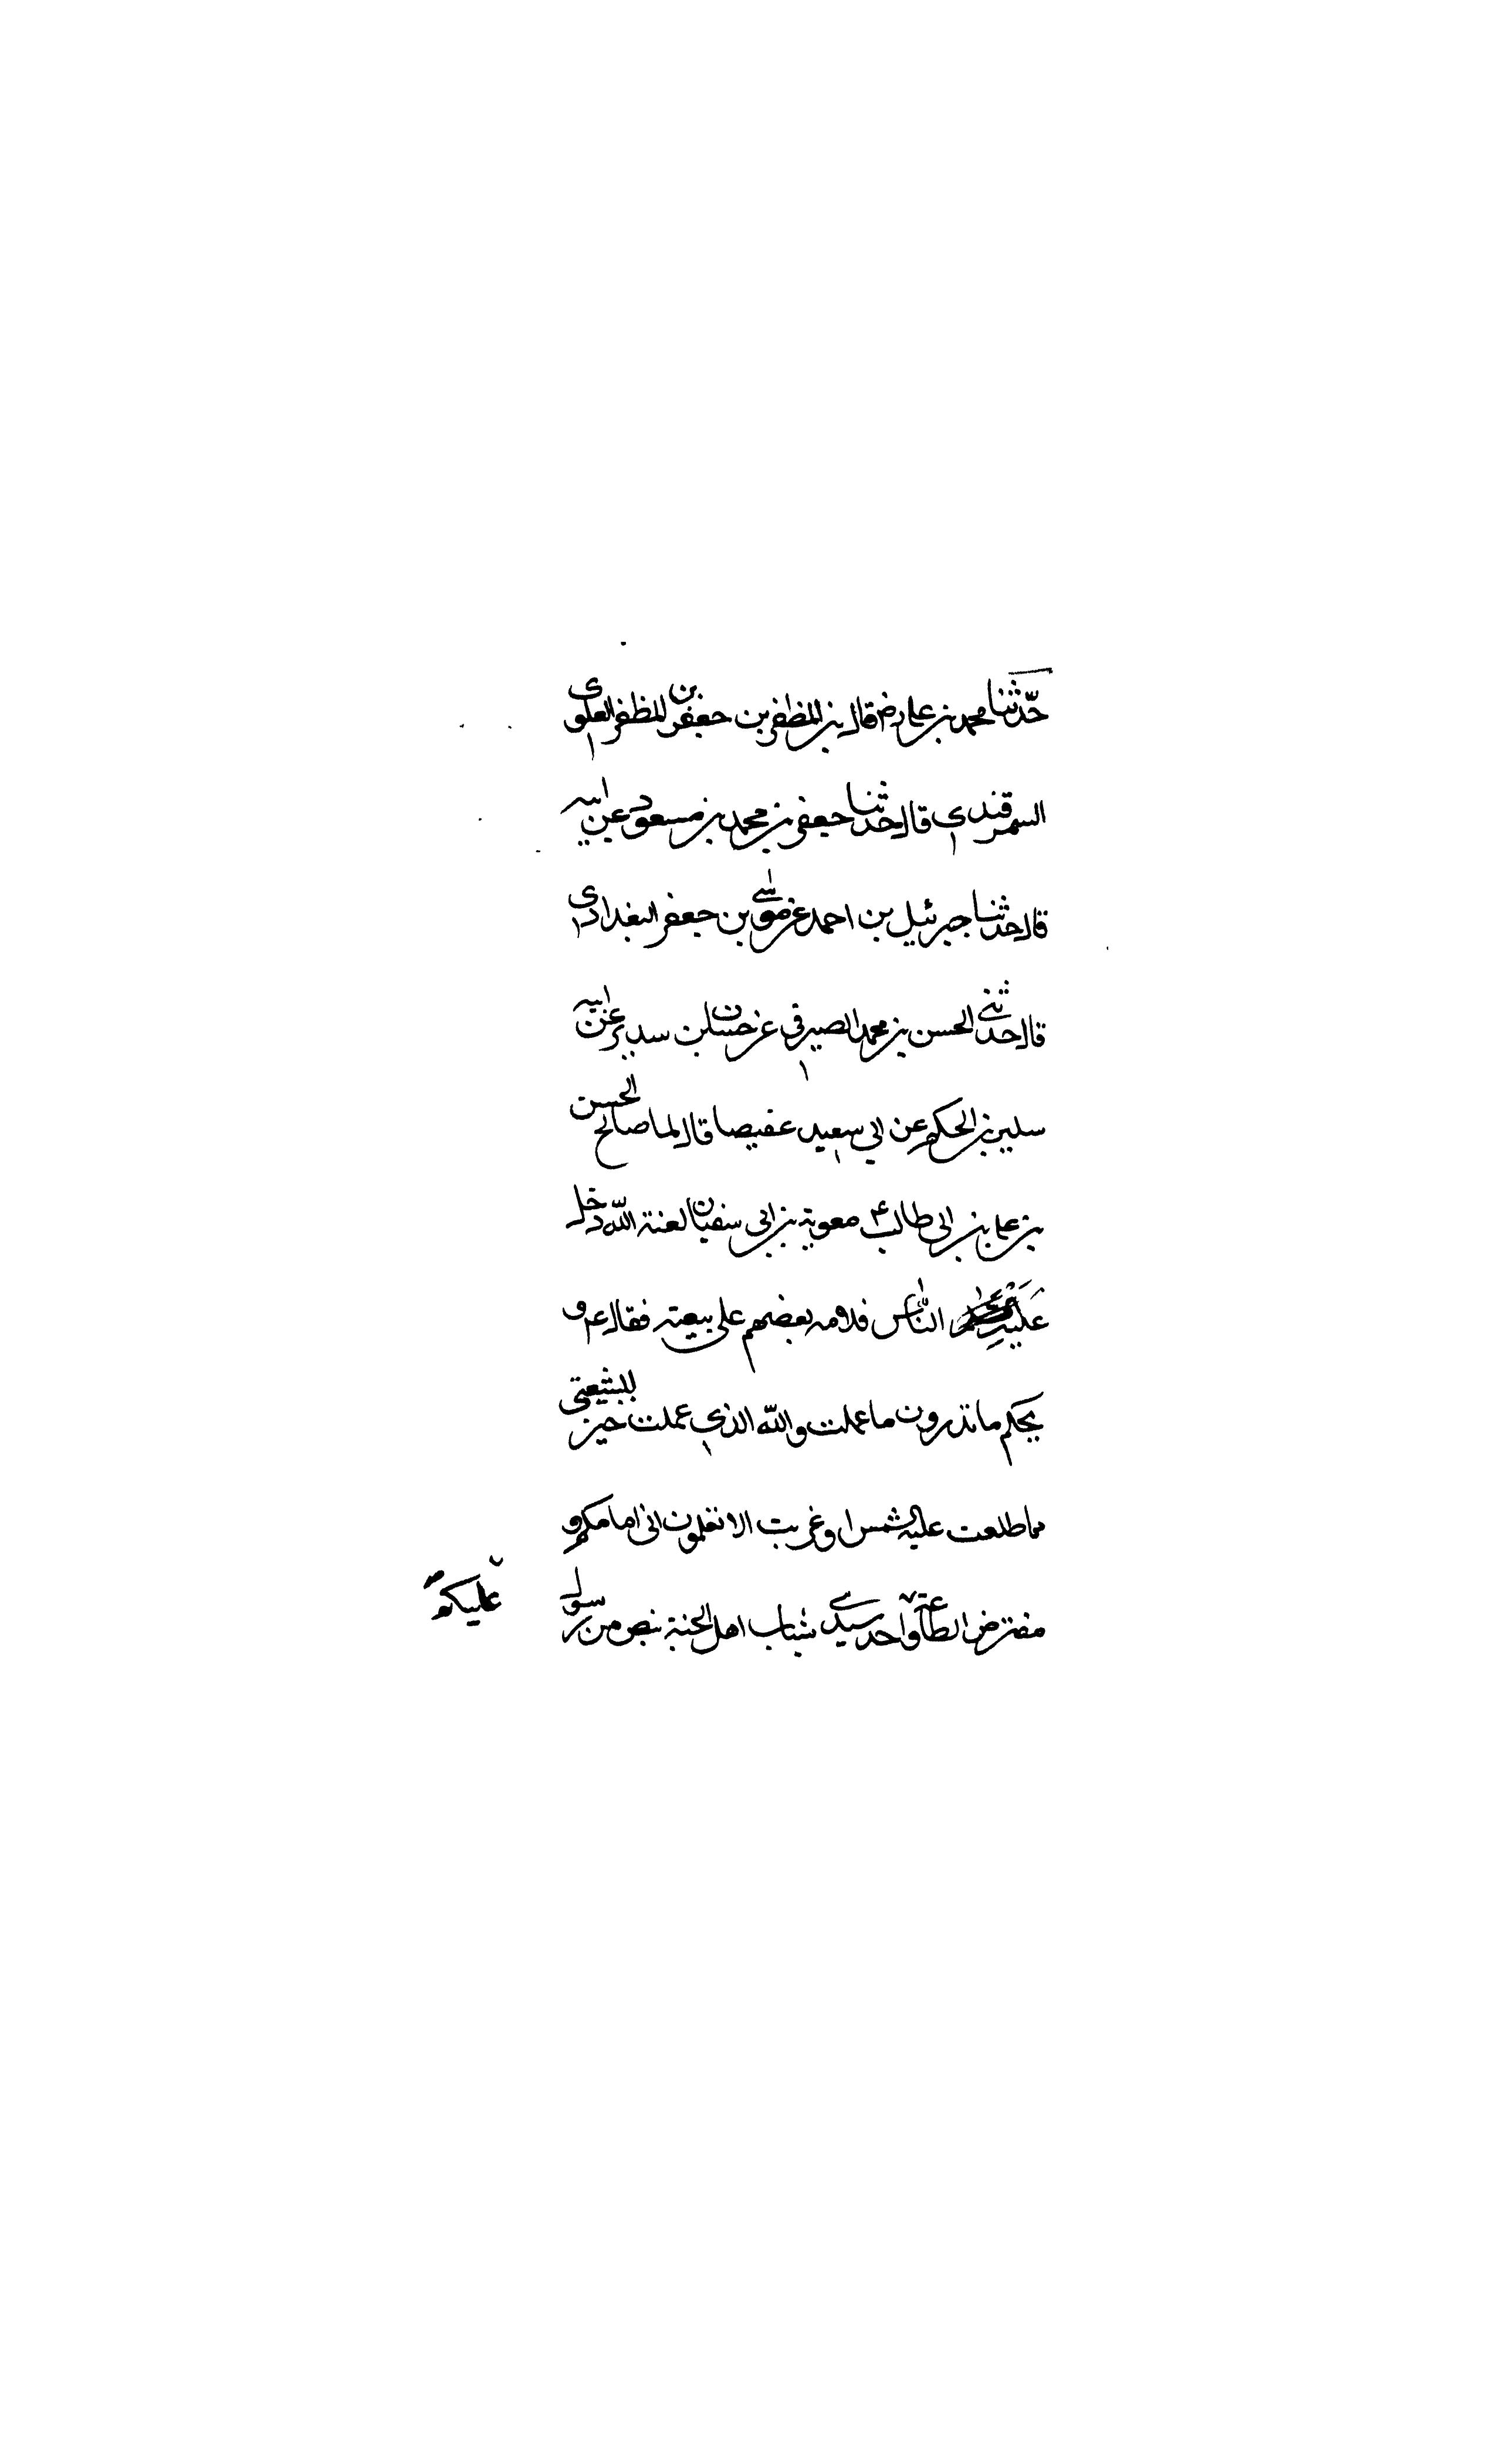 حدثنا محمد بن علي رض قال بن المظفر بن جعفر بن المظفر العلوي
السمرقندي قال حدثنا جعفر بن محمد بن مسعود عن ابيه
قال حدثنا جبرئيل بن احمد عن موسى بن جعفر البغدادي
قال حدثني الحسن بن محمد الصيرفي عن حنان بن سدير عن ابيه
سدير بن الحكم عن ابي سعيد عقيصا قال لما صالح الحسن
بن علي بن ابي طالب ع معوية بن ابي سفيان لعنة الله دخل
عليه الناس فلامه بعضهم على بيعته فقال ع و
يحكم ما تدرون ما عملت والله الذي عملت خير لشيعتي
مما طلعت عليه الشمس او غربت الا تعلمون اني امامكم و
مفترض الطاعة واحد سيدي شباب اهل الجنة بنص من رسول
عليكم